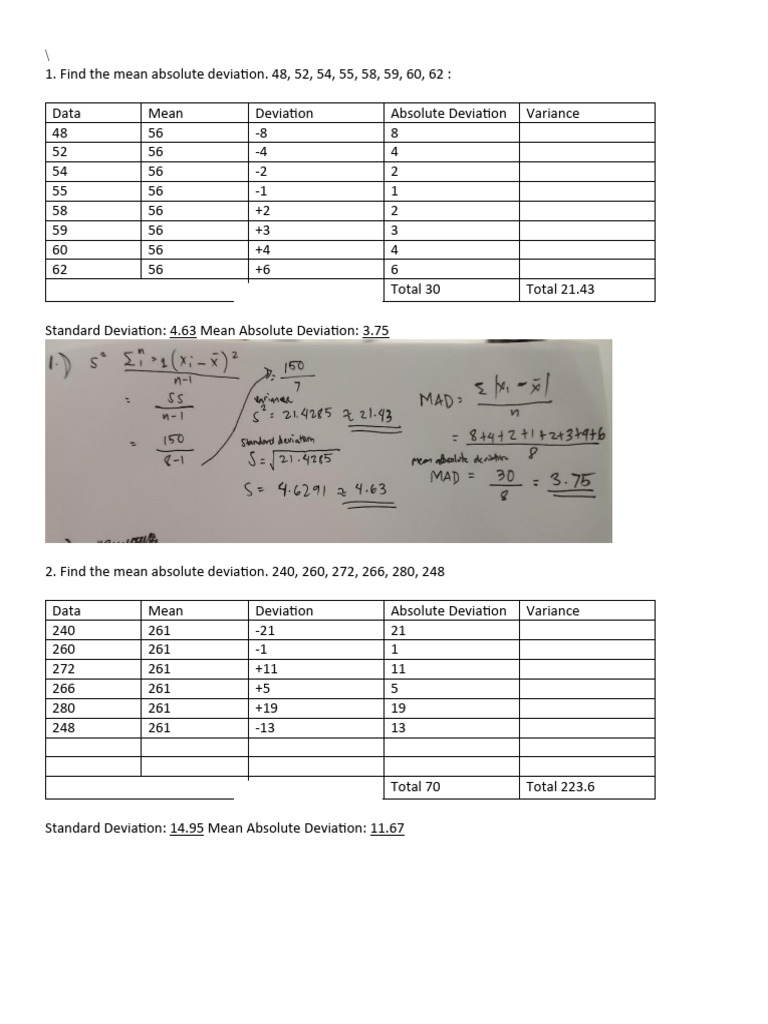 \
1. Find the mean absolute deviation. 48, 52, 54, 55, 58, 59, 60, 62 :
Data Mean Deviation Absolute Deviation Variance
48 56 -8 8
52 56 -4 4
54 56 -2 2
55 56 -1 1
58 56 +2 2
59 56 +3 3
60 56 +4 4
62 56 +6 6
Total 30 Total 21.43
Standard Deviation: 4.63 Mean Absolute Deviation: 3.75
1.) S² Σᵢⁿ=1 (xᵢ - x̄)²
n-1
= SS
n-1
= 150
8-1
D= 150
7
variance
S² = 21.4285 ≈ 21.43
standard deviation
S = √21.4285
S = 4.6291 ≈ 4.63
MAD = Σ |x₁ - x̄|
n
= 8+4+2+1+2+3+4+6
8
mean absolute deviation
MAD = 30 = 3.75
8
2. Find the mean absolute deviation. 240, 260, 272, 266, 280, 248
Data Mean Deviation Absolute Deviation Variance
240 261 -21 21
260 261 -1 1
272 261 +11 11
266 261 +5 5
280 261 +19 19
248 261 -13 13
Total 70 Total 223.6
Standard Deviation: 14.95 Mean Absolute Deviation: 11.67